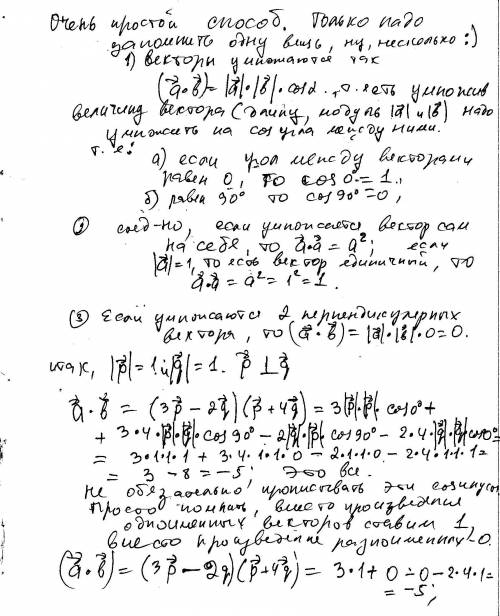 Очень простой способ. Только надо
запомнить одну вещь, ну, несколько :)
1) векторы умножаются так
(a⃗·b⃗)=|a⃗|·|b⃗|·cosα. т.есть умножив
величину вектора (длину, модуль |a⃗| и |b⃗|) надо
умножить на cos угла между ними.
т.е:
а) если угол между векторами
равен 0, то cos 0°=1.,
б) равен 90° то cos 90°=0,
2) след-но, если умножается вектор сам
на себя, то a⃗·a⃗ = a²; если
|a⃗|=1, то есть вектор единичный, то
a⃗·a⃗ = a² = 1² = 1.
3) Если умножаются 2 перпендикулярных
вектора, то (a⃗·b⃗)=|a⃗|·|b⃗|·0=0.
итак, |p⃗|=1 и |q⃗|=1. p⃗ ⊥ q⃗
a⃗·b⃗ = (3p⃗-2q⃗)(p⃗+4q⃗)=3|p⃗|·|p⃗|·cos0°+
+ 3·4·|p⃗|·|q⃗|·cos90°-2|q⃗|·|p⃗|cos90°-2·4·|q⃗|·|q⃗|cos0°=
= 3·1·1·1 + 3·4·1·1·0 - 2·1·1·0 - 2·4·1·1·1=
= 3 - 8 = -5; это все.
не обязательно прописывать эти косинусы
просто помнить, вместо произведения
одноименных векторов ставим 1,
вместо произведение разноименных-0.
(a⃗·b⃗)=(3p⃗-2q⃗)(p⃗+4q⃗)=3·1+0-0-2·4·1=
=-5;